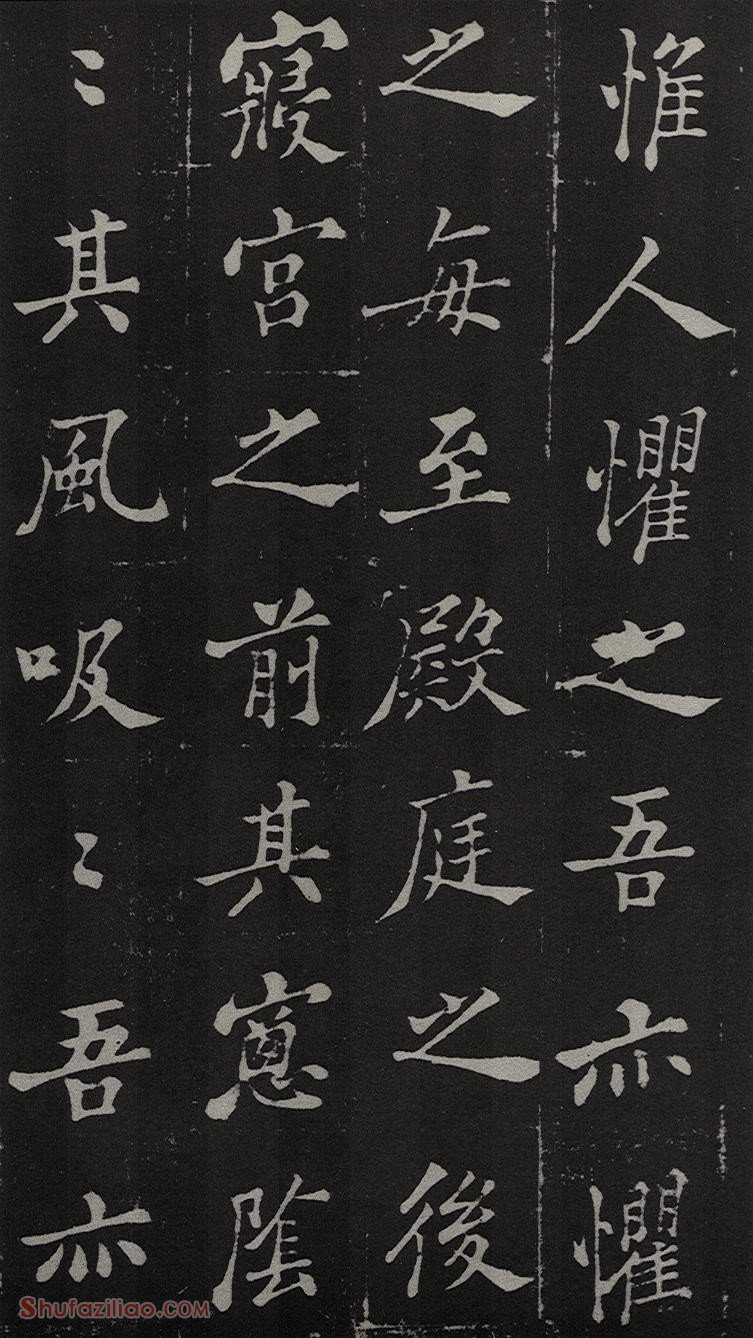 惟人懼之吾亦懼
之每至殿庭之後
寢宮之前其窻陰
〻其風吸〻吾亦
Shufaziliao.COM